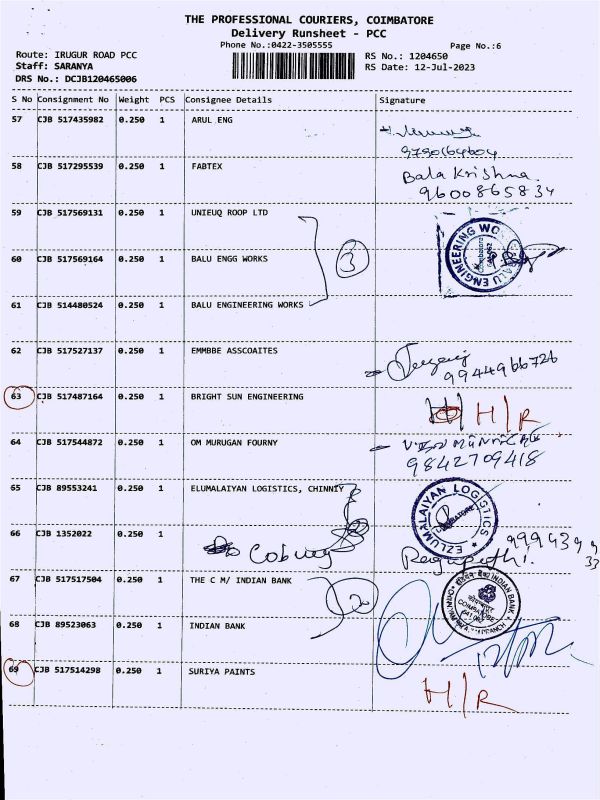 THE PROFESSIONAL COURIERS, COIMBATORE
Delivery Runsheet - PCC
Phone No.:0422-3505555
Page No.:6
Route: IRUGUR ROAD PCC
RS No.: 1204650
Staff: SARANYA
RS Date: 12-Jul-2023
DRS No.: DCJB120465006
S No Consignment No Weight PCS Consignee Details Signature
57 CJB 517435982 0.250 1 ARUL ENG
9790164604
58 CJB 517295539 0.250 1 FABTEX
Bala Krishna.
9600865834
59 CJB 517569131 0.250 1 UNIEUQ ROOP LTD
60 CJB 517569164 0.250 1 BALU ENGG WORKS
3
BALU ENGINEERING WORKS
Coimbatore
61 CJB 514480524 0.250 1 BALU ENGINEERING WORKS
62 CJB 517527137 0.250 1 EMMBBE ASSCOAITES
9944966726
63 CJB 517487164 0.250 1 BRIGHT SUN ENGINEERING
H/R
64 CJB 517544872 0.250 1 OM MURUGAN FOURNY
9842709418
65 CJB 89553241 0.250 1 ELUMALAIYAN LOGISTICS, CHINNIY
EZLUMALAIYAN LOGISTICS
COIMBATORE
66 CJB 1352022 0.250 1
67 CJB 517517504 0.250 1 THE C M/ INDIAN BANK
2
INDIAN BANK
COIMBATORE
BRANCH
68 CJB 89523063 0.250 1 INDIAN BANK
69 CJB 517514298 0.250 1 SURIYA PAINTS
H/R